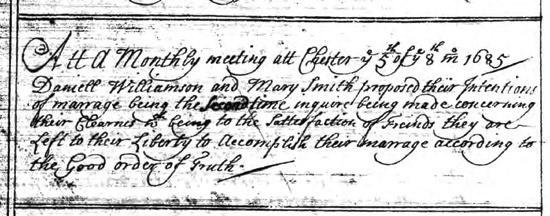 Att A Monthly meeting att Chester yᵉ 5ᵗʰ of yᵉ 8ᵗʰ mᵒ 1685
Daniell Williamson and Mary Smith proposed their Intentions
of marrage being the Second time inquire being made concerning
their Clearnes it being to the Sattesfaction of Freinds they are
Left to their Liberty to Accomplish their marrage according to
the Good order of Truth